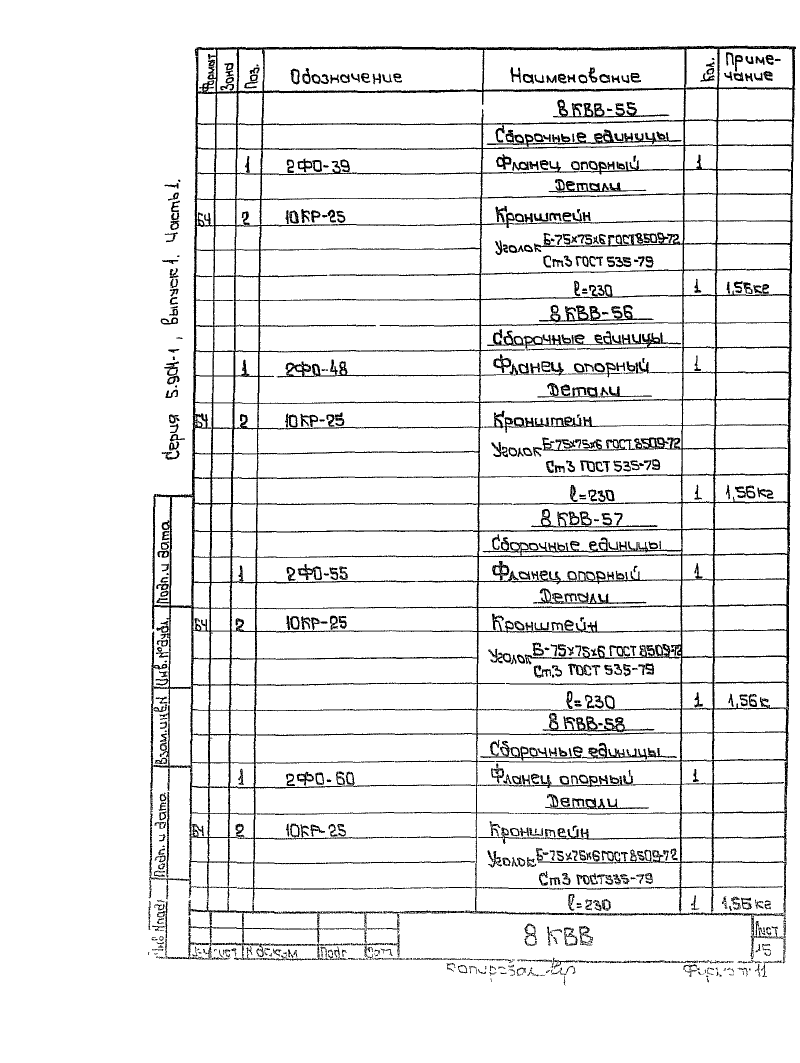 Серия 5.904-1, выпуск 1. Часть 1.
Формат Зона Поз. Обозначение Наименование Кол. Приме-
чание
8 КВВ-55
Сборочные единицы
1 2ФО-39 Фланец опорный 1
Детали
БЧ 2 10КР-25 Кронштейн
Уголок Б-75х75х6 ГОСТ 8509-72
Ст3 ГОСТ 535-79
ℓ=230 1 1,56кг
8 КВВ-56
Сборочные единицы
1 2ФО-48 Фланец опорный 1
Детали
БЧ 2 10КР-25 Кронштейн
Уголок Б-75х75х6 ГОСТ 8509-72
Ст3 ГОСТ 535-79
ℓ=230 1 1,56кг
8 КВВ-57
Сборочные единицы
1 2ФО-55 Фланец опорный 1
Детали
БЧ 2 10КР-25 Кронштейн
Уголок Б-75х75х6 ГОСТ 8509-72
Ст.3 ГОСТ 535-79
ℓ=230 1 1,56к
8 КВВ-58
Сборочные единицы
1 2ФО-60 Фланец опорный 1
Детали
БЧ 2 10КР-25 Кронштейн
Уголок Б-75х75х6 ГОСТ 8509-72
Ст3 ГОСТ 535-79
ℓ=230 1 1,56кг
Подп. и дата
Инв. № дубл.
Взам. инв. №
Подп. и дата
Инв. № подл.
8 КВВ
Лист
15
Копировал
Формат 11